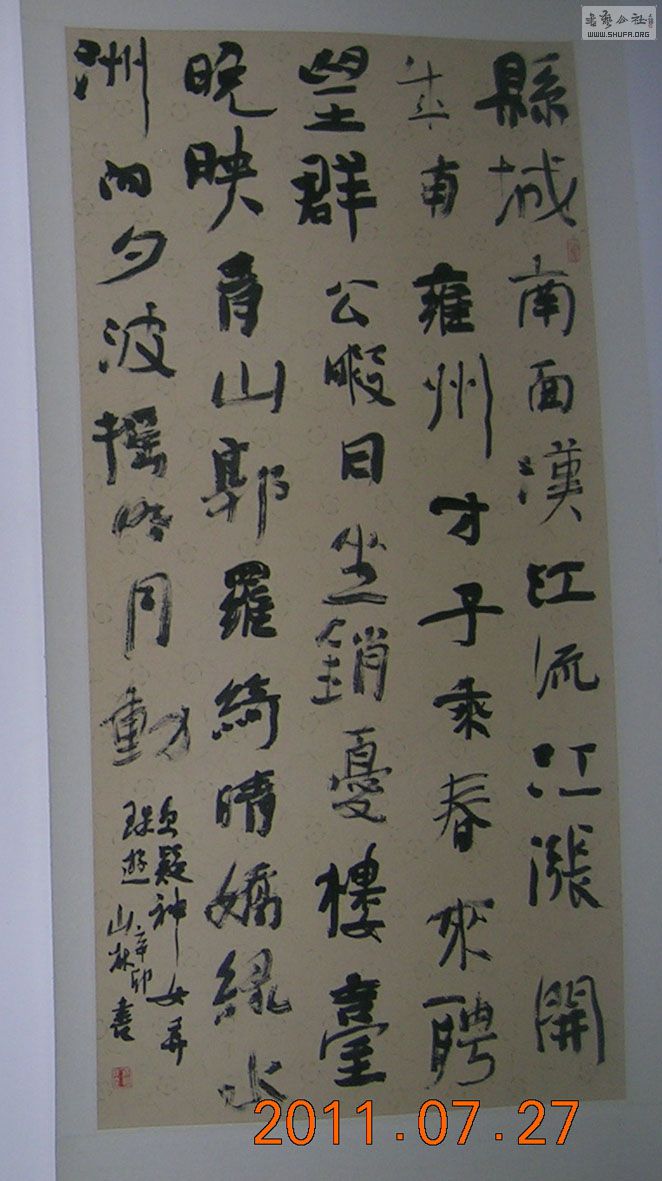 縣城南面漢江流江漲開
成南雍州才子乘春來聘
望群公暇日坐銷憂樓臺
晚映青山郭羅綺晴嬌綠水
洲向夕波摇明月動
更疑神女弄
珠遊
辛卯
山林書
書藝公社
WWW.SHUFA.ORG
2011.07.27